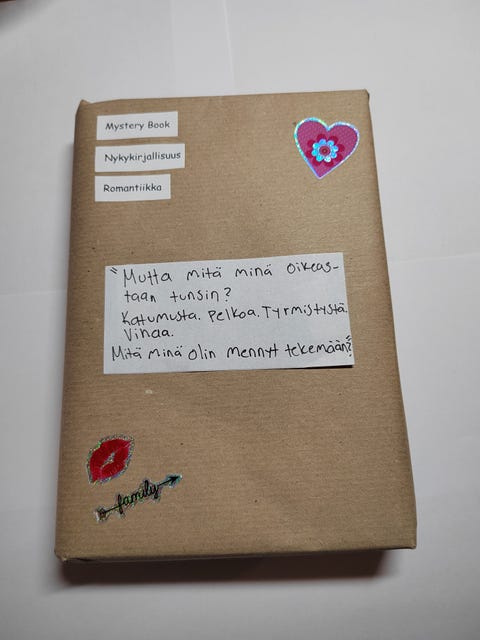 Mystery Book
Nykykirjallisuus
Romantiikka
"Mutta mitä minä oikeas-
taan tunsin?
Katumusta. Pelkoa. Tyrmistystä.
Vihaa.
Mitä minä olin mennyt tekemään?"
family